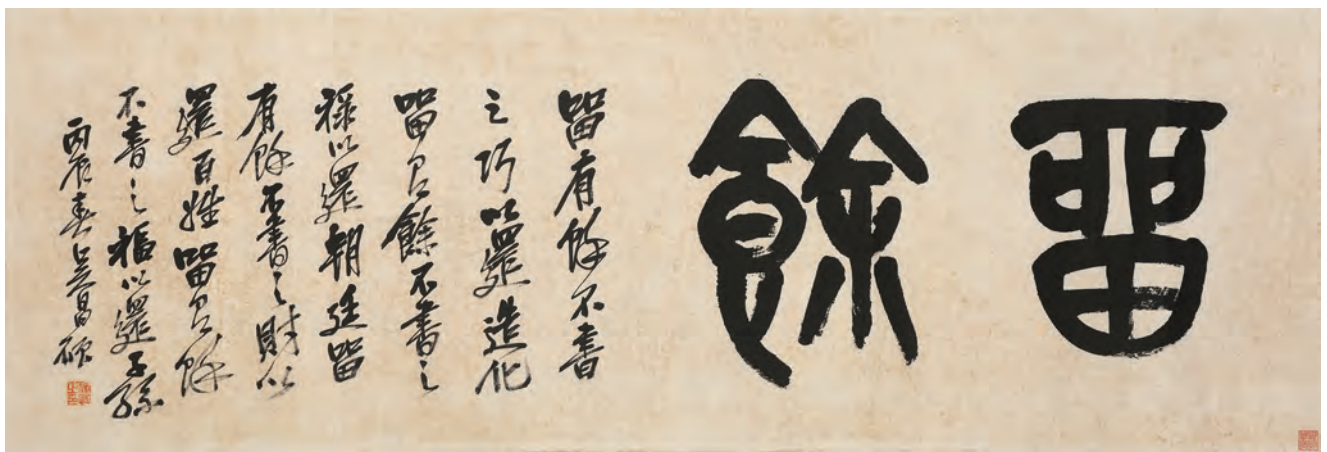 留餘
留有餘不盡
之巧以還造化
留有餘不盡之
祿以還朝廷留
有餘不盡之財以
還百姓留有餘
不盡之福以還子孫
丙辰春吳昌碩